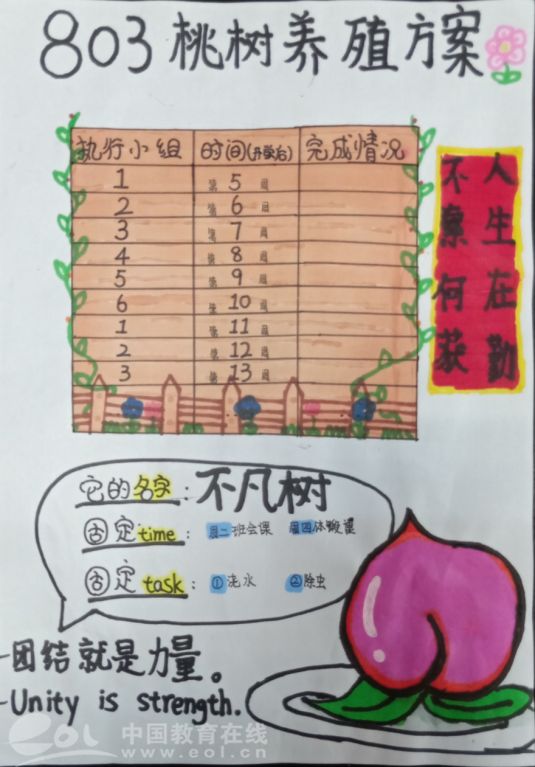 803桃树养殖方案
执行小组 时间(开学后) 完成情况
1 第5周
2 第6周
3 第7周
4 第8周
5 第9周
6 第10周
1 第11周
2 第12周
3 第13周
人生在勤
不索何获
它的名字：不凡树
固定time： 周二班会课 周四体锻课
固定task： ①浇水 ②除虫
-团结就是力量。
-Unity is strength.
eol 中国教育在线
www.eol.cn